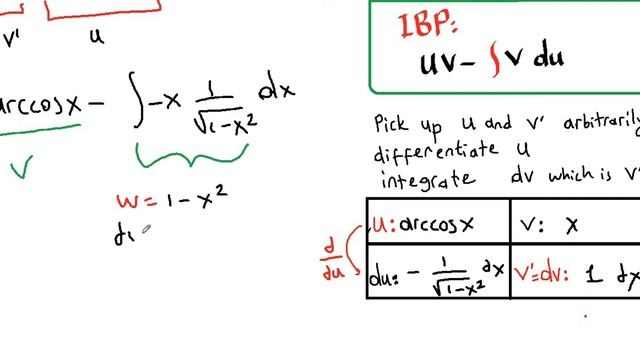 v' u
arccosx − ∫ −x 1/√(1−x²) dx
v
w = 1 − x²
IBP:
uv − ∫ v du
Pick up u and v' arbitrarily
differentiate u
integrate dv which is v'
d/du
u: arccosx v: x
du: − 1/√(1−x²) dx v'=dv: 1 dx